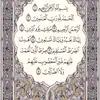 بِسْمِ اللَّهِ الرَّحْمَٰنِ الرَّحِيمِ
الْحَمْدُ لِلَّهِ رَبِّ الْعَالَمِينَ
الرَّحْمَٰنِ الرَّحِيمِ مَالِكِ يَوْمِ الدِّينِ
إِيَّاكَ نَعْبُدُ وَإِيَّاكَ نَسْتَعِينُ
اهْدِنَا الصِّرَاطَ الْمُسْتَقِيمَ صِرَاطَ الَّذِينَ
أَنْعَمْتَ عَلَيْهِمْ غَيْرِ الْمَغْضُوبِ عَلَيْهِمْ
وَلَا الضَّالِّينَ